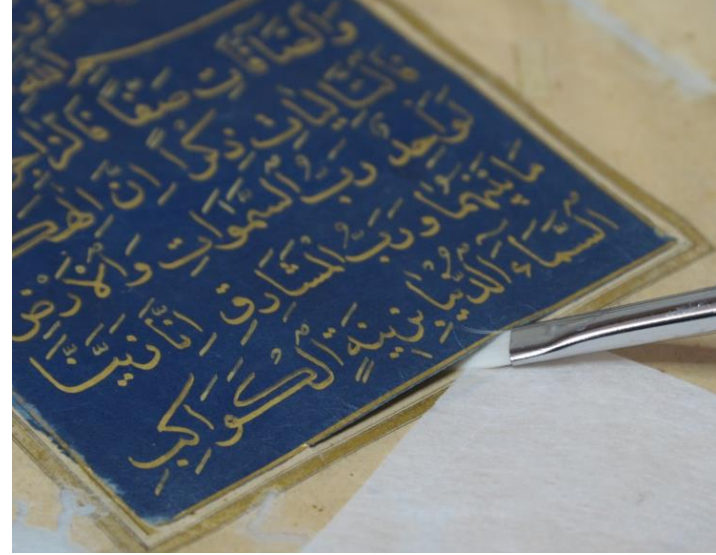 الله
وَالصَّافَّاتِ صَفًّا
فَالتَّالِيَاتِ ذِكْرًا اِنَّ اِلٰهَكُ
لَوَاحِدٌ رَبُّ السَّمٰوَاتِ وَالْاَرْضِ
مَا بَيْنَهُمَا وَرَبُّ الْمَشَارِقِ اِنَّا زَيَّنَّا
السَّمَاءَ الدُّنْيَا بِزِينَةٍ الْكَوَاكِبِ